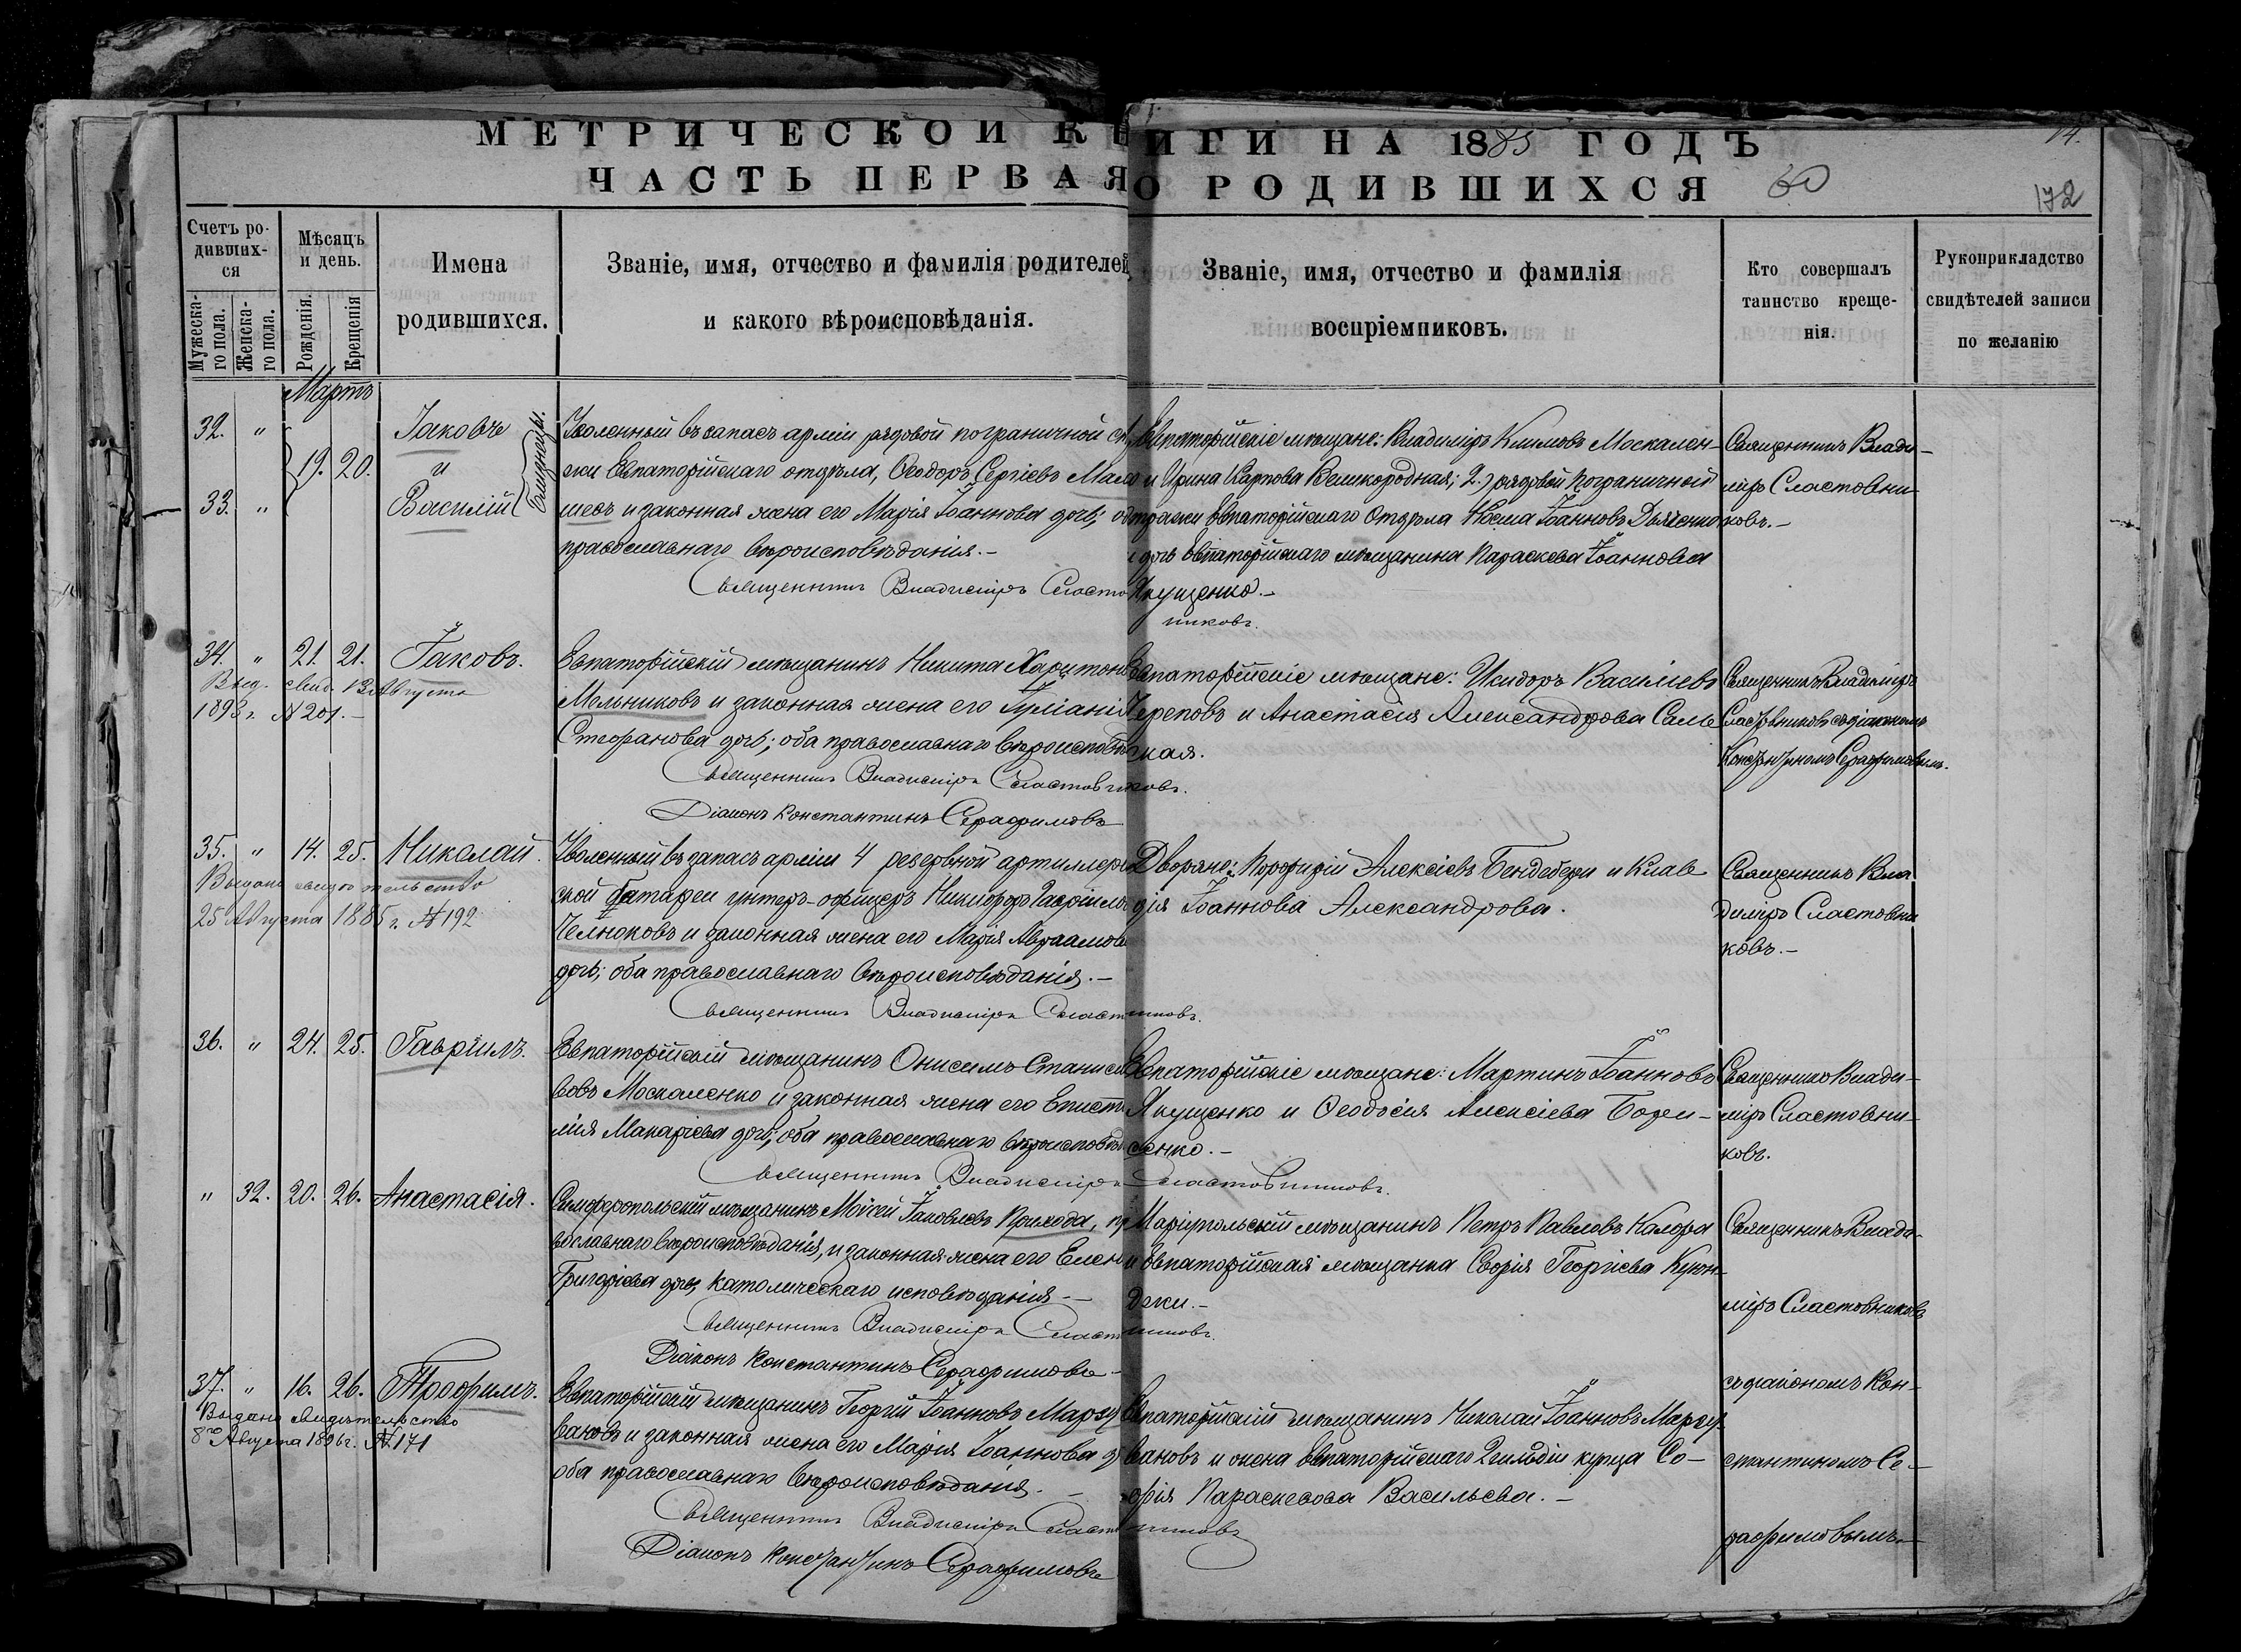 МЕТРИЧЕСКОЙ КНИГИ НА 1885 ГОДЪ
14.
ЧАСТЬ ПЕРВАЯ О РОДИВШИХСЯ
60
172
Счетъ родившихся
Мужескаго пола.
Женскаго пола.
Мѣсяцъ и день.
Рожденія.
Крещенія
Имена родившихся.
Званіе, имя, отчество и фамилія родителей,
и какого вѣроисповѣданія.
Званіе, имя, отчество и фамилія
воспріемниковъ.
Кто совершалъ
таинство креще-
нія.
Рукоприкладство
свидѣтелей записи
по желанію
Мартъ
32. "
33. "
19. 20.
Іаковъ
и
Василій
близнецы.
Уволенный въ запасъ арміи рядовой пограничной
жи Евпаторійскаго отдѣла, Ѳеодоръ Сергіевъ
шевъ и законная жена его Марія Іоаннова дочь;
православнаго вѣроисповѣданія.-
Священникъ Владиміръ Сластовниковъ.
Евпаторійскіе мѣщане: Владиміръ Климовъ Москален-
и Ирина Карпова Великородная; 2.) рядовой пограничной
стражи Евпаторійскаго Отдѣла Косма Іоанновъ Дьяченко
и дочь Евпаторійскаго мѣщанина Параскева Іоаннова
Якущенко.-
Священникъ Влади-
міръ Сластовни-
ковъ.-
34. " 21. 21.
Іаковъ.
Выд. свид. 13 Августа
1893 г. № 201.-
Евпаторійскій мѣщанинъ Никита Харитоновъ
Мельниковъ и законная жена его Іуліанія
Стефанова дочь; оба православнаго вѣроисповѣд
Священникъ Владиміръ Сластовниковъ.
Діаконъ Константинъ Серафимовъ
Евпаторійскіе мѣщане: Исидоръ Васильевъ
Череповъ и Анастасія Александрова Саль
ская.
Священникъ Владиміръ
Сластовниковъ съ діакономъ
Константиномъ Серафимовымъ.
35. " 14. 25.
Николай.
Выдано свидѣтельство
25 Августа 1885 г. № 192
Уволенный въ запасъ арміи 4 резервной артиллерій
ской батареи унтеръ-офицеръ Никифоръ Гавріиловъ
Челноковъ и законная жена его Марія Авраамова
дочь; оба православнаго вѣроисповѣданія.-
Священникъ Владиміръ Сластовниковъ.
Дворяне: Порфирій Алексіевъ Бендебери и Клав
дія Іоаннова Александрова.
Священникъ Вла
диміръ Сластовни
ковъ.-
36. " 24. 25.
Гавріилъ.
Евпаторійскій мѣщанинъ Онисимъ Станисла
вовъ Москаленко и законная жена его Еписти
мія Макаріева дочь; оба православнаго вѣроисповѣд
Священникъ Владиміръ Сластовниковъ.
Евпаторійскіе мѣщане: Мартинъ Іоанновъ
Якущенко и Ѳеодосія Алексіева Бори-
сенко.-
Священникъ Влади-
міръ Сластовни-
ковъ.
" 32. 20. 26.
Анастасія.
Симферопольскій мѣщанинъ Моісей Іаковлевъ Приходa, пра
вославнаго вѣроисповѣданія, и законная жена его Елена
Григоріева дочь, католическаго исповѣданія.-
Священникъ Владиміръ Сластовниковъ.
Діаконъ Константинъ Серафимовъ
Маріупольскій мѣщанинъ Петръ Павловъ Калфа
и Евпаторійская мѣщанка Софія Георгіева Куюн-
джи.-
Священникъ Влади-
міръ Сластовниковъ
37. " 16. 26.
Трофимъ.
Выдано свидѣтельство
8го Августа 1896 г. № 171
Евпаторійскій мѣщанинъ Георгій Іоанновъ Марзу
вановъ и законная жена его Марія Іоаннова
оба православнаго вѣроисповѣданія.-
Священникъ Владиміръ Сластовниковъ
Діаконъ Константинъ Серафимовъ
Евпаторійскій мѣщанинъ Николай Іоанновъ Марзу
вановъ и жена Евпаторійскаго 2 гильдіи купца Со-
фія Параскевова Васильева.-
съ діакономъ Кон-
стантиномъ Се-
рафимовымъ.